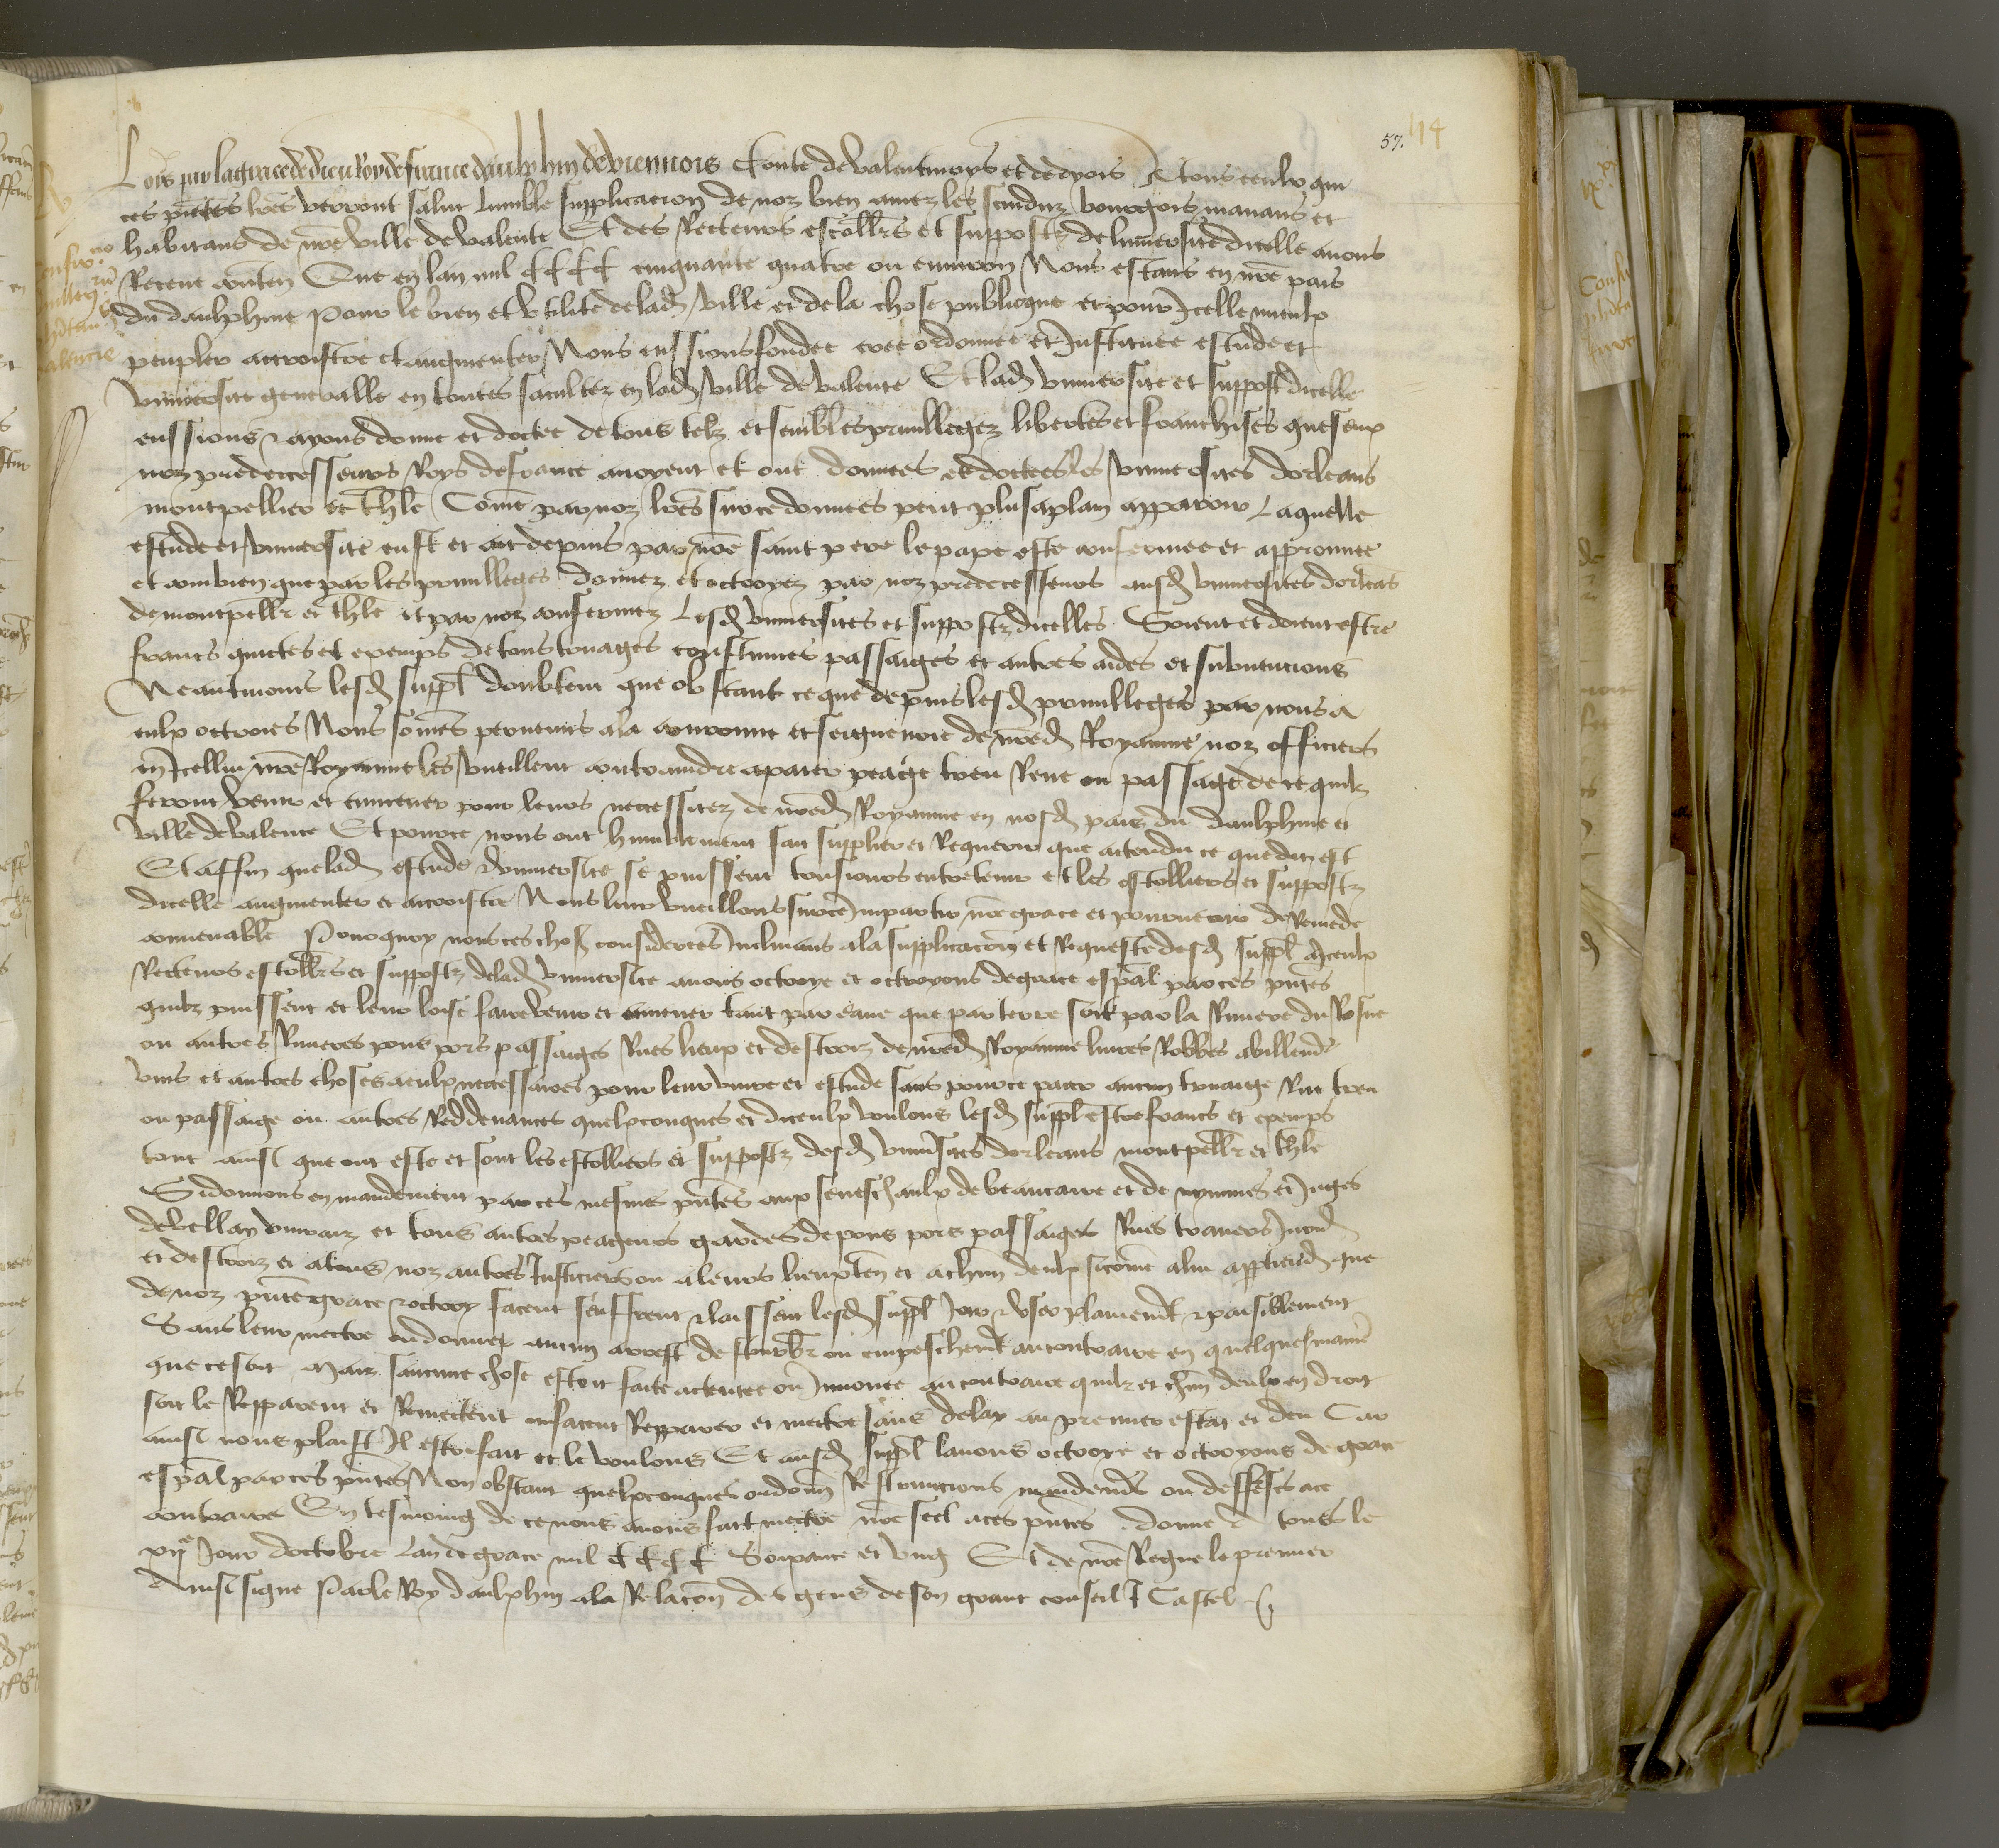 57. 114
Lois par la grace de dieu Roy de france daulphin de viennois Conte de valentinoys et de dyois A tous ceulx qui
ces pntes lres verront salut Lumble supplicacion de noz bien amez les scindiz bourgois manans et
habitans de nre ville de valence Et des Recteurs escolliers et suppostz de luniversite dicelle avons
Receue conten Que en lan mil CCCC cinquante quatre ou environ Nous estans en nre pais
du daulphine Pour le bien et utilite de lad ville et de la chose publicque et pour Icelle mieulx
peupler accroistre et augmenter Nous eussions fondee cree ordonnee et Instituee estude et
Universite generalle en toutes facultez en lad ville de valence Et lad universite et suppost dicelle
eussions & ayons donne et dottee de tous telz et semblables privilleges libertes et franchises que feux
noz predecesseurs Roys de france avoyent et ont donnees et dottees les universites dorleans
montpellier et thle Come par noz lres sur ce donnees peut plus aplain apparoir Laquelle
estude et universite eust et ait depuis par nre saint pere le pape este confermee et approuvee
et combien que par les privilleges donnez et octroyez par noz predecesseurs ausd universites dorleas
de montpellr et thle et par noz confermez Lesd universites et suppostz dicelles Soient et doient estre
francs quictes et exemps de tous truages coustumes passaiges et autres aides et subvencions
Neantmoins lesd suppl doubtent que obstant ce que depuis lesd privilleges par nous a
eulx octroies Nous somes pervenus ala couronne et seigneurie de nred Royaume noz officiers
en Icellui nre Royaume les vueillent contraindre a paier peage treu Reve ou passage de ce quilz
feront venir et emmener pour leurs necessitez de nred Royaume en nosd pais du daulphine et
ville de valence Et pource nous ont humblement fait supplier et Requerir que attendu ce que dit est
Et affin que lad estude & universite se puissent tousiours entretenir et les escolliers et suppostz
dicelle augmenter et accroistre Nous leur vueillons sur ce Impartir nre grace et pourveoir de Remede
convenable Pourquoy nous ces choses considerees Inclinans ala supplicacon et Requeste desd suppl A Iceulx
Recteurs escolliers et suppostz de lad universite avons octroye et octroyons de grace espal par ces pntes
quilz puissent et leur loise faire venir et amener tant par eaue que par terre soit par la Riviere du Rosne
ou autres Rivieres pons pors passaiges Rues lieux et destroiz de nred Royaume livres Robbes abillemens
vins et autres choses aeulx necessaires pour leur vivre et estude sans pource paier aucun truaige Riu treu
ou passaige ou autres Reddevances quelxconques et diceulx voulons lesd suppl estre francs et exemps
tout ainsi que ont este et sont les escolliers et suppostz desd universites dorleans montpellr et thle
Si donnons en mandement par ces mesmes pntes aux seneschaulx de beaucaire et de nymmes et Juges
de vellay vivarz et tous autres peageurs gardes de pons pors passaiges Rues travers Jurid
et destroiz et a tous noz autres Justiciers ou a leurs lieuxten et achun deulx sicome alui appartiend que
de noz pnte grace & octroy facent seuffrent & laissent lesd suppl Joir & user plainement & paisiblement
Sans leur mectre ou donner aucun arrest destourbr ou empeschent au contraire en quelque maner
que ce soit Mais saucune chose estoit faicte actentee ou Innovee au contraire quilz et chun deulx en droit
soit le Repparent et Remectent ou facent Repparer et mectre sans delay au premier estat et deu Car
ainsi nous plaist Il estre fait et le voulons Et ausd suppl lavons octroye et octroyons de grace
espal par ces pntes Non obstant quelxconques ordonn Restrinctions mandemens ou deffenses ace
contraire En tesmoing de ce nous avons fait mectre nre seel aces pntes donne a tours le
xije Jour doctobre Lan de grace mil CCCC Soixante et ung Et de nre Regne le premier
Ainsi signe Par le Roy daulphin ala Relacon des gens de son grant conseil J Castel